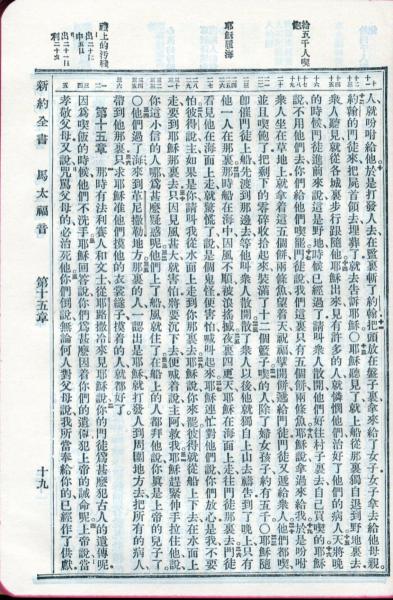 給五千人喫飽
耶穌履海
禮上的汚穢
出二十○十二申五○十六
出二十一○十七利二十○九
人就吩咐給他於是打發人去在監裏斬了約翰把頭放在盤子裏拿來給了女子女子拿去給他母親
約翰的門徒來把屍首領去埋葬了就去告訴耶穌○耶穌聽見了就上船從那裏獨自退到野地裏去
衆人聽見就從各城裏步行跟隨他耶穌出來見有許多的人就憐憫他們治好了他們的病人天將晚
的時候門徒進前來說這是野地時候已經過了請叫衆人散開他們好往村子裏去自己買喫的耶穌
說不用他們去你們給他們喫罷門徒說我們這裏只有五個餅兩條魚耶穌說拿過來給我於是吩咐
衆人坐在草地上就拿着這五個餅兩條魚望着天祝福擘開餅遞給門徒門徒又遞給衆人他們都喫
並且喫飽了把剩下的零碎收拾起來裝滿了十二個籃子喫的人除了婦女孩子約有五千○耶穌隨
卽催門徒上船先渡到那邊去等他叫衆人散開散了衆人以後他就獨自上山去禱告到了晚上只有
他一人在那裏那時船在海中因風不順被浪搖撼夜裏四更天耶穌在海面上走往門徒那裏去門徒
看見他在海面上走就驚慌了說是個鬼怪便害怕喊叫起來耶穌連忙對他們說你們放心是我不要
怕彼得說主如果是你請叫我從水面上走到你那裏去耶穌說你來罷彼得就從船上下去在水面上
走要到耶穌那裏去只因見風甚大就害怕將要沉下去便喊着說主阿救我耶穌趕緊伸手拉住他說
你這小信的人哪爲甚麼疑惑呢他們上了船風就住了在船上的人都拜他說你眞是上帝的兒子了
○他們過了海來到革尼撒勒地方那裏的人一認出是耶穌就打發人到周圍地方去把所有的病人
帶到他那裏只求耶穌准他們摸他的衣裳繸子摸着的人就都好了
第十五章 那時有法利賽人和文士從耶路撒冷來見耶穌說你的門徒爲甚麼犯古人的遺傳呢
因爲喫飯的時候他們不洗手耶穌回答說你們爲甚麼因着你們的遺傳犯上帝的誡命呢上帝說當
孝敬父母又說咒罵父母的必治死他你們倒說無論何人對父母說我所當奉給你的已經作了供獻
新約全書 馬太福音 第十五章 十九